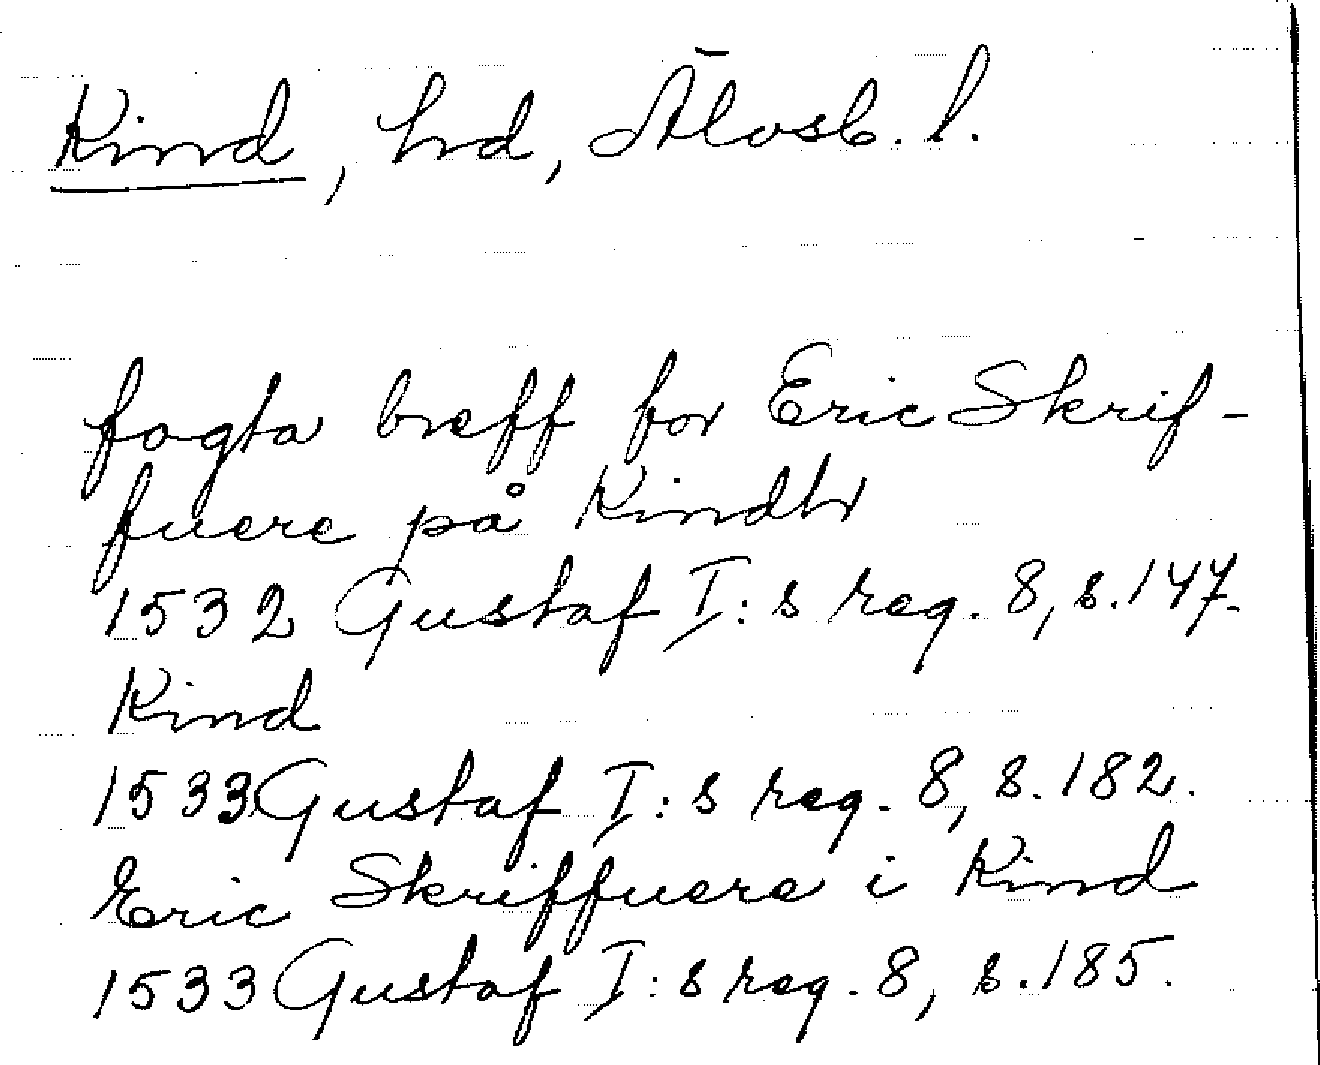 Kind, hd, Älvsb. l.
fogta breff for Eric Skrif-
fuere på Kindh
1532 Gustaf I:s reg. 8, s. 147.
Kind
1533 Gustaf I:s reg. 8, s. 182.
Eric Skriffuere i Kind
1533 Gustaf I:s reg. 8, s. 185.